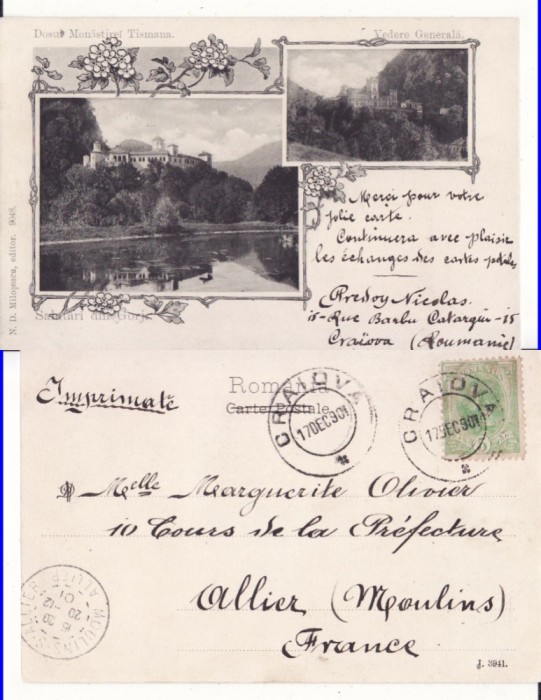 Dosul Monăstirei Tismana.
Vedere Generală.
N. D. Milopescu, editor. 9048.
Merçi pour votre
jolie carte.
Continuera avec plaisir
les échanges des cartes postales
Predoy Nicolas.
15-Rue Barbu Catargiu-15
Craïova (Roumanie)
Salutări din Gorj.
Imprimate
România
Carte Postale
CRAIOVA
17DEC901
CRAIOVA
17DEC901
Melle Marguerite Olivier
10 Cours de la Préfecture
Allier (Moulins)
France
MOULINS-S-ALLIER
ALLIER
15 30
20-12
01
J. 3941.